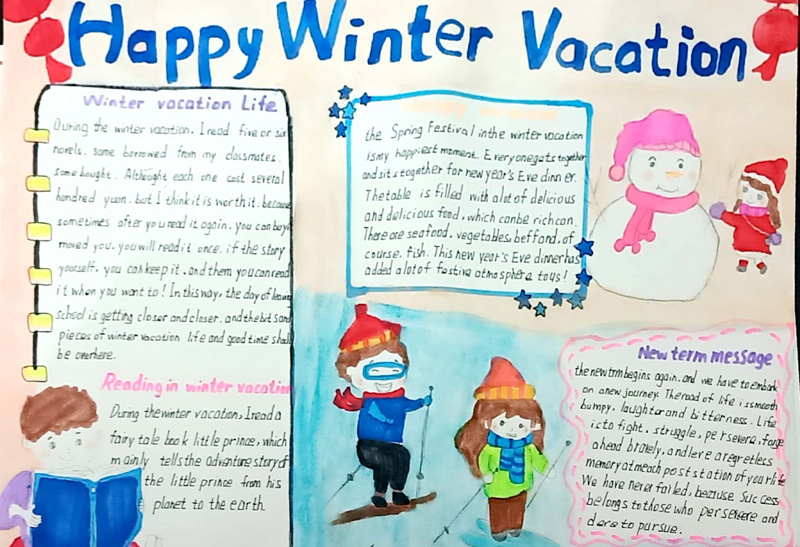 Happy Winter Vacation
Winter vacation Life
During the winter vacation. I read five or six
novels. some borrowed from my classmates.
some bought. Althought each one cost several
hundred yuan. but I think it is worth it. because
sometimes after you read it again. you can buy it
moved you. you will read it once. if the story
yourself. you can keep it. and them you can read
it when you want to! In this way, the day of leave
school is getting closer and closer. and the bits and
pieces of winter vacation life and good time shall
be over here.
Reading in winter vacation
During the winter vacation, I read a
fairy tale book little prince, which
mainly tells the adventure story of
the little prince from his
planet to the earth.
the Spring Festival in the winter vacation
is my happiest moment. Everyone gets together
and sits together for new year's Eve dinner.
The table is filled with a lot of delicious
and delicious food, which can be rich can.
There are seafood. vegetables, beff and, of
course. fish. This new year's Eve dinner has
added a lot of festiva atmosphera tous!
New term message
the new trm begins again. and we have to embark
on a new journey. The road of life is smooth
bumpy, laughter and bitterness. Life
is to fight, struggle, persevera, forge
ahead bravely, and leve a regretless
memory at meach post station of your life
We have never failed, because Success
belongs to those who persevere and
dare to pursue.